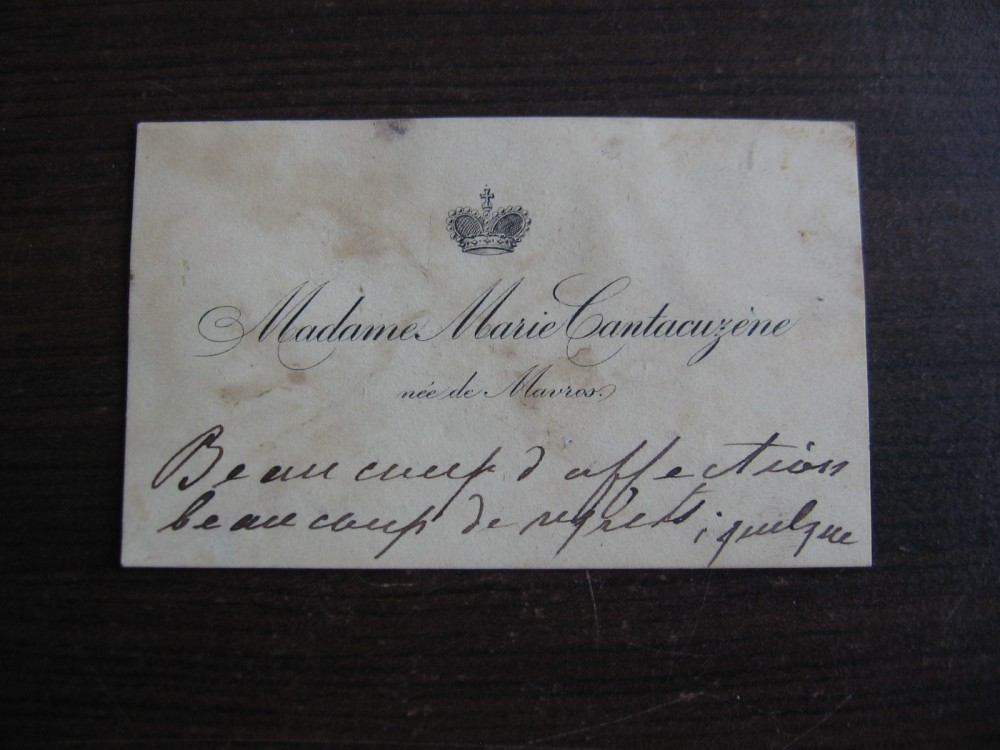 Madame Marie Cantacuzène
née de Mavros
Beaucoup d'affection
beaucoup de regrets ; quelque